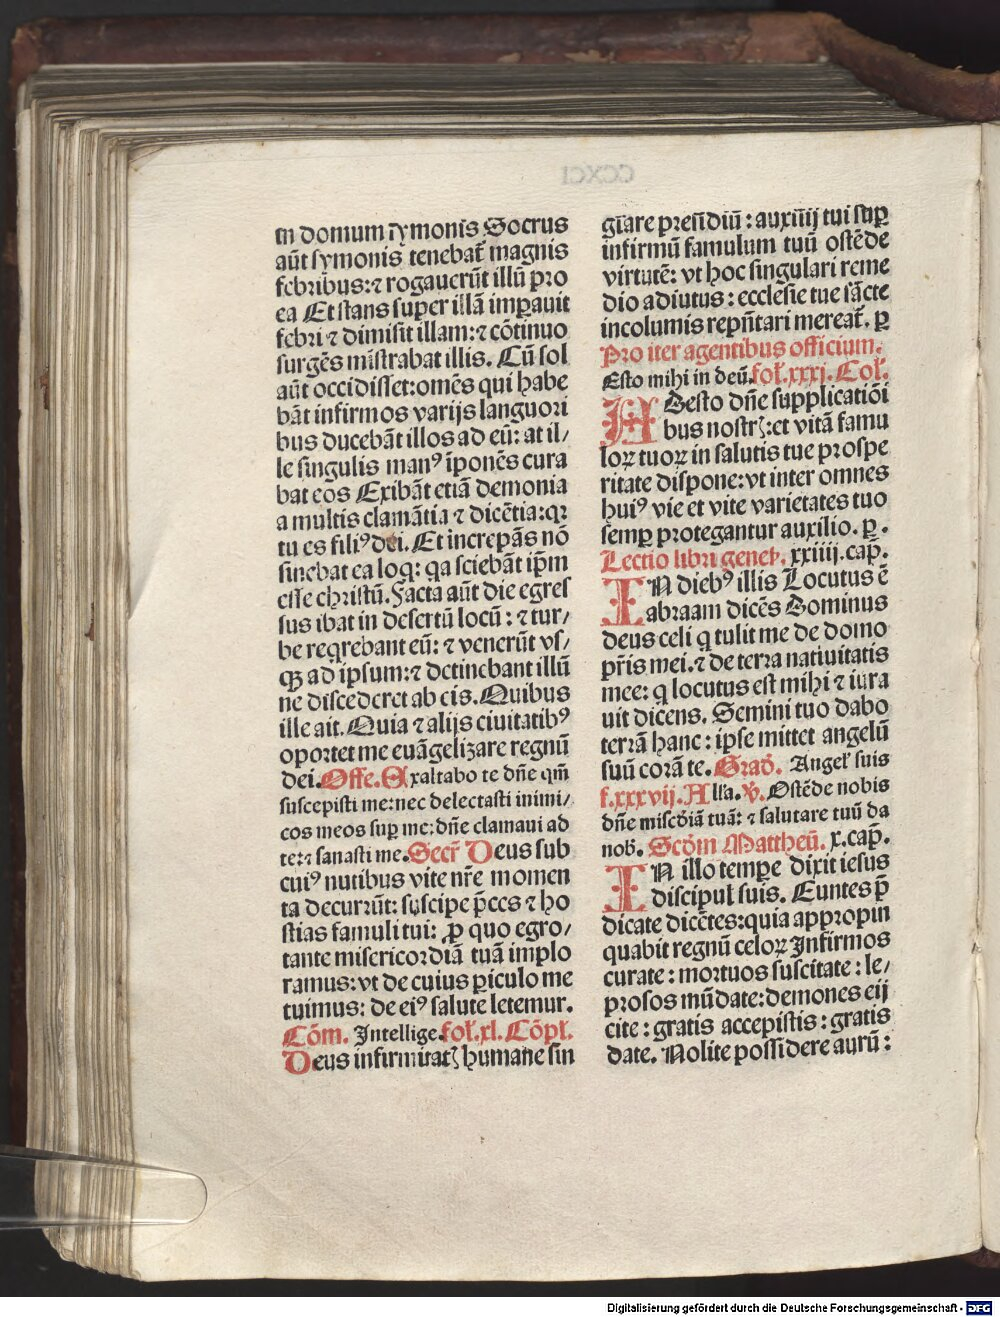 in domum symonis Socrus
aūt symonis tenebat̄ magnis
febribus:⁊ rogauerūt illū pro
ea Et stans super illā imꝑauit
febri ⁊ dimisit illam:⁊ cōtinuo
surgēs mīstrabat illis. Cū sol
aūt occidisset:omēs qui habe
bāt infirmos varijs languori
bus ducebāt illos ad eū: at il/
le singulis manꝰ īponēs cura
bat eos Exibāt etiā demonia
a multis clamātia ⁊ dicētia:qꝛ
tu es filiꝰ dei. Et increpās nō
sinebat ea loq: qa sciebāt ip̄m
esse christū. Facta aūt die egres
sus ibat in desertū locū : ⁊ tur/
be reqrebant eū: ⁊ venerūt vs/
qꝫ ad ipsum:⁊ detinebant illū
ne discederet ab eis. Quibus
ille ait. Quia ⁊ alijs ciuitatibꝰ
oportet me euāgelizare regnū
dei. Offe. Exaltabo te dn̄e qm̄
suscepisti me:nec delectasti inimi/
cos meos suꝑ me: dn̄e clamaui ad
te:⁊ sanasti me. Secr̄ Deus sub
cuiꝰ nutibus vite nr̄e momen
ta decurrūt: suscipe p̄ces ⁊ ho
stias famuli tui: ꝓ quo egro/
tante misericordiā tuā implo
ramus: vt de cuius ꝑiculo me
tuimus: de eiꝰ salute letemur.
Cōm. Intellige. fol. xl. Cōpl.
Deus infirmitatꝭ humane sin
CCXCI
gl̄are presidiū : auxilij tui suꝑ
infirmū famulum tuū ostēde
virtutē: vt hoc singulari reme
dio adiutus : ecclesie tue sācte
incolumis rep̄ntari mereat̄. ꝑ
Pro iter agentibus officium.
Esto mihi in deū. fol. xxxj. Col.
ADesto dn̄e supplicatiōi
bus nostrꝭ: et vitā famu
loꝝ tuoꝝ in salutis tue prospe
ritate dispone: vt inter omnes
huiꝰ vie et vite varietates tuo
semꝑ protegantur auxilio. ꝑ .
Lectio libri genes. xxiiij. cap̄.
IN diebꝰ illis Locutus ē
abraam dicēs Dominus
deus celi q tulit me de domo
pr̄is mei. ⁊ de terra natiuitatis
mee: q locutus est mihi ⁊ iura
uit dicens. Semini tuo dabo
terrā hanc : ipse mittet angelū
suū corā te. Grad. Angel' suis
f. xxxvij. Alla. ℣. Ostēde nobis
dn̄e misc̄diā tuā: ⁊ salutare tuū da
nob. Scd̄m Mattheū. x. cap̄.
IN illo tempe dixit iesus
discipul' suis. Euntes p̄
dicate dicētes: quia appropin
quabit regnū celoꝝ Infirmos
curate : mortuos suscitate : le/
prosos mūdate: demones eij
cite : gratis accepistis : gratis
date. Nolite possidere aurū :
Digitalisierung gefördert durch die Deutsche Forschungsgemeinschaft - DFG